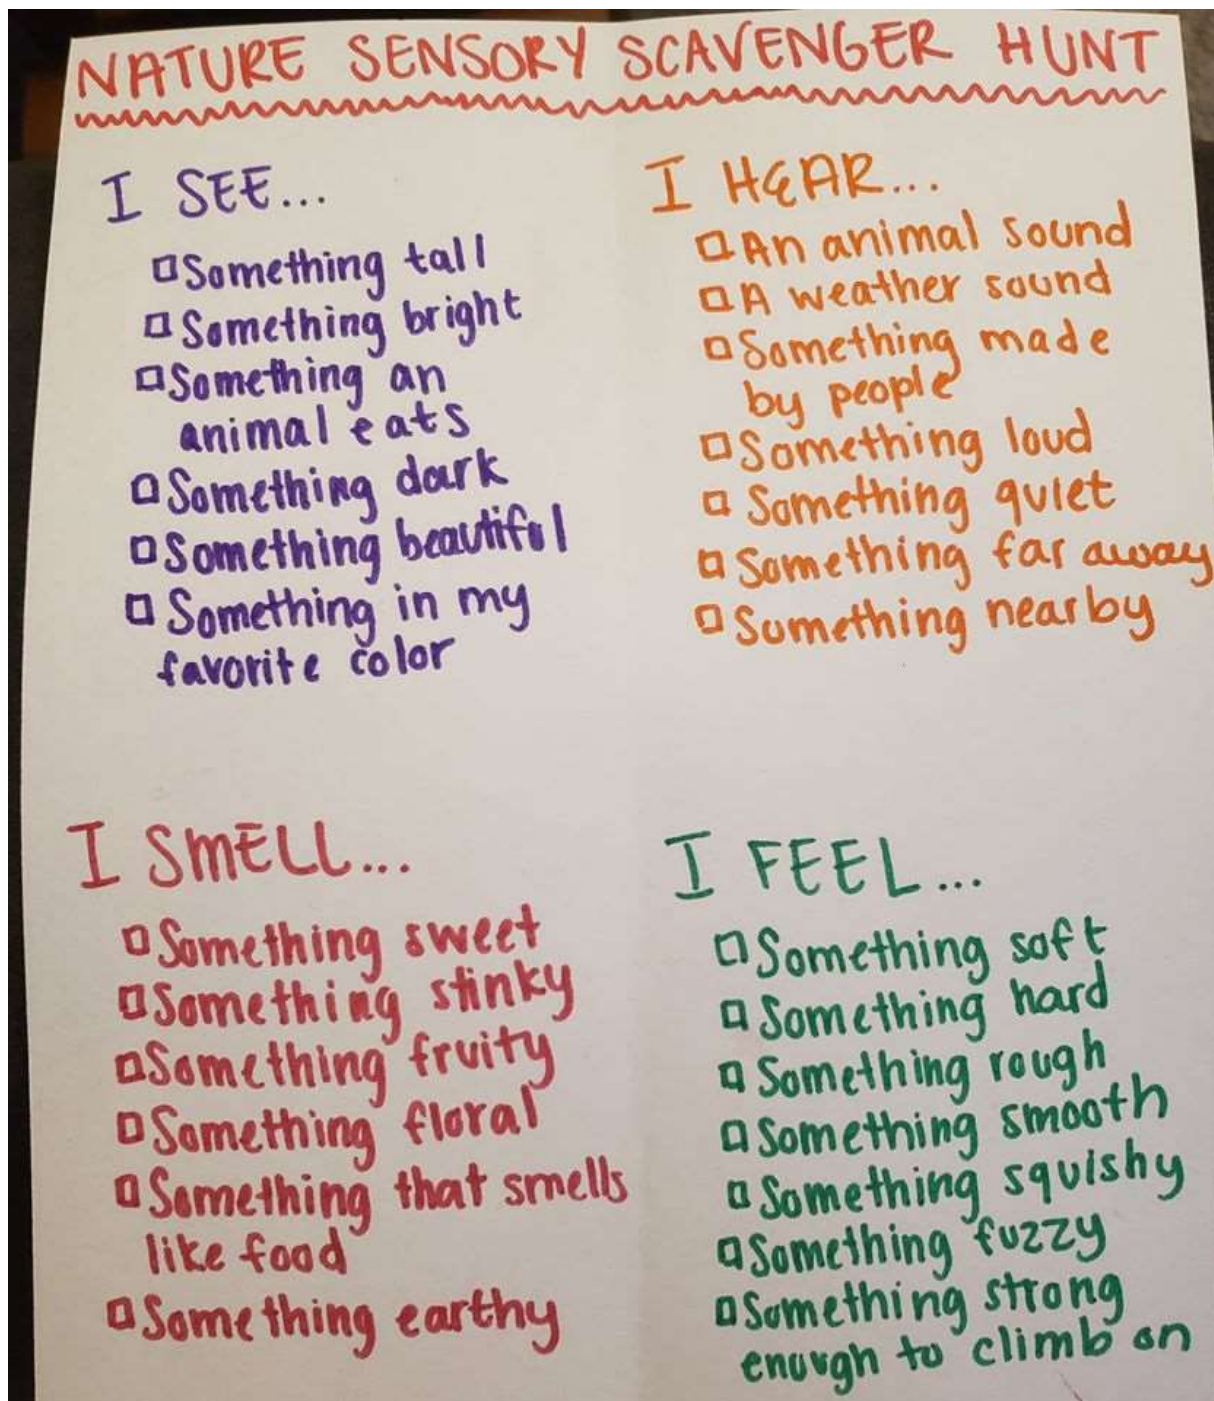 NATURE SENSORY SCAVENGER HUNT
I SEE...
Something tall
Something bright
Something an
animal eats
Something dark
Something beautiful
Something in my
favorite color
I HEAR...
An animal sound
A weather sound
Something made
by people
Something loud
Something quiet
Something far away
Something nearby
I SMELL...
Something sweet
Something stinky
Something fruity
Something floral
Something that smells
like food
Something earthy
I FEEL...
Something soft
Something hard
Something rough
Something smooth
Something squishy
Something fuzzy
Something strong
enough to climb on